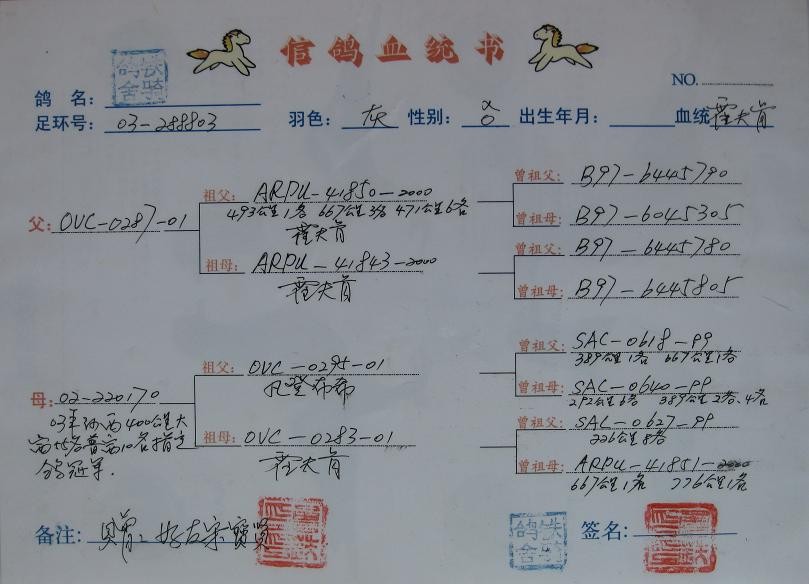 信鸽血统书
铁骑鸽舍
NO.
鸽 名：
足环号： 03-288803 羽色： 灰 性别： 出生年月： 血统 霍夫肯
父： OVC-0287-01
祖父： ARPU-41850-2000
493公里1名 667公里3名 471公里6名
霍夫肯
祖母： ARPU-41843-2000
霍夫肯
曾祖父： B97-6445790
曾祖母： B97-6045305
曾祖父： B97-6445780
曾祖母： B97-6445805
母： 02-220170
03年 西400公里大
冠军.
祖父： OVC-0295-01
凡登布希
祖母： OVC-0283-01
霍夫肯
曾祖父： SAC-0618-99
389公里1名 667公里1名
曾祖母： SAC-0640-99
292公里6名 389公里2名、4名
曾祖父： SAC-0627-99
226公里8名
曾祖母： ARPU-41851-2000
667公里1名 226公里1名
备注： 好友宋宝贤
铁骑鸽舍
签名：